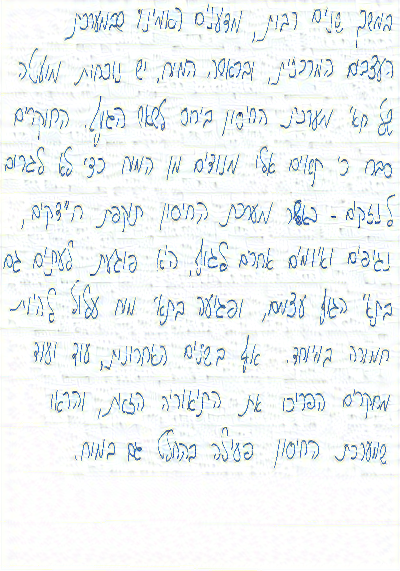 במשך שנים רבות, מדענים האמינו שבמערכת
העצבים המרכזית, ובראשה המוח, יש נוכחות מועטה
של תאי מערכת החיסון ביחס לשאר הגוף. החוקרים
סברו כי תאים אלו מנודים מן המוח כדי לא לגרום
לנזקים - כאשר מערכת החיסון תוקפת חיידקים,
נגיפים ואיומים אחרים לגוף, היא פוגעת לעתים גם
בתאי הגוף עצמם, ופגיעה בתאי מוח עלולה להיות
חמורה במיוחד. אולם בשנים האחרונות, עוד ועוד
מחקרים הפריכו את התיאוריה הזאת, והראו
שמערכת החיסון פעילה בהחלט גם במוח.